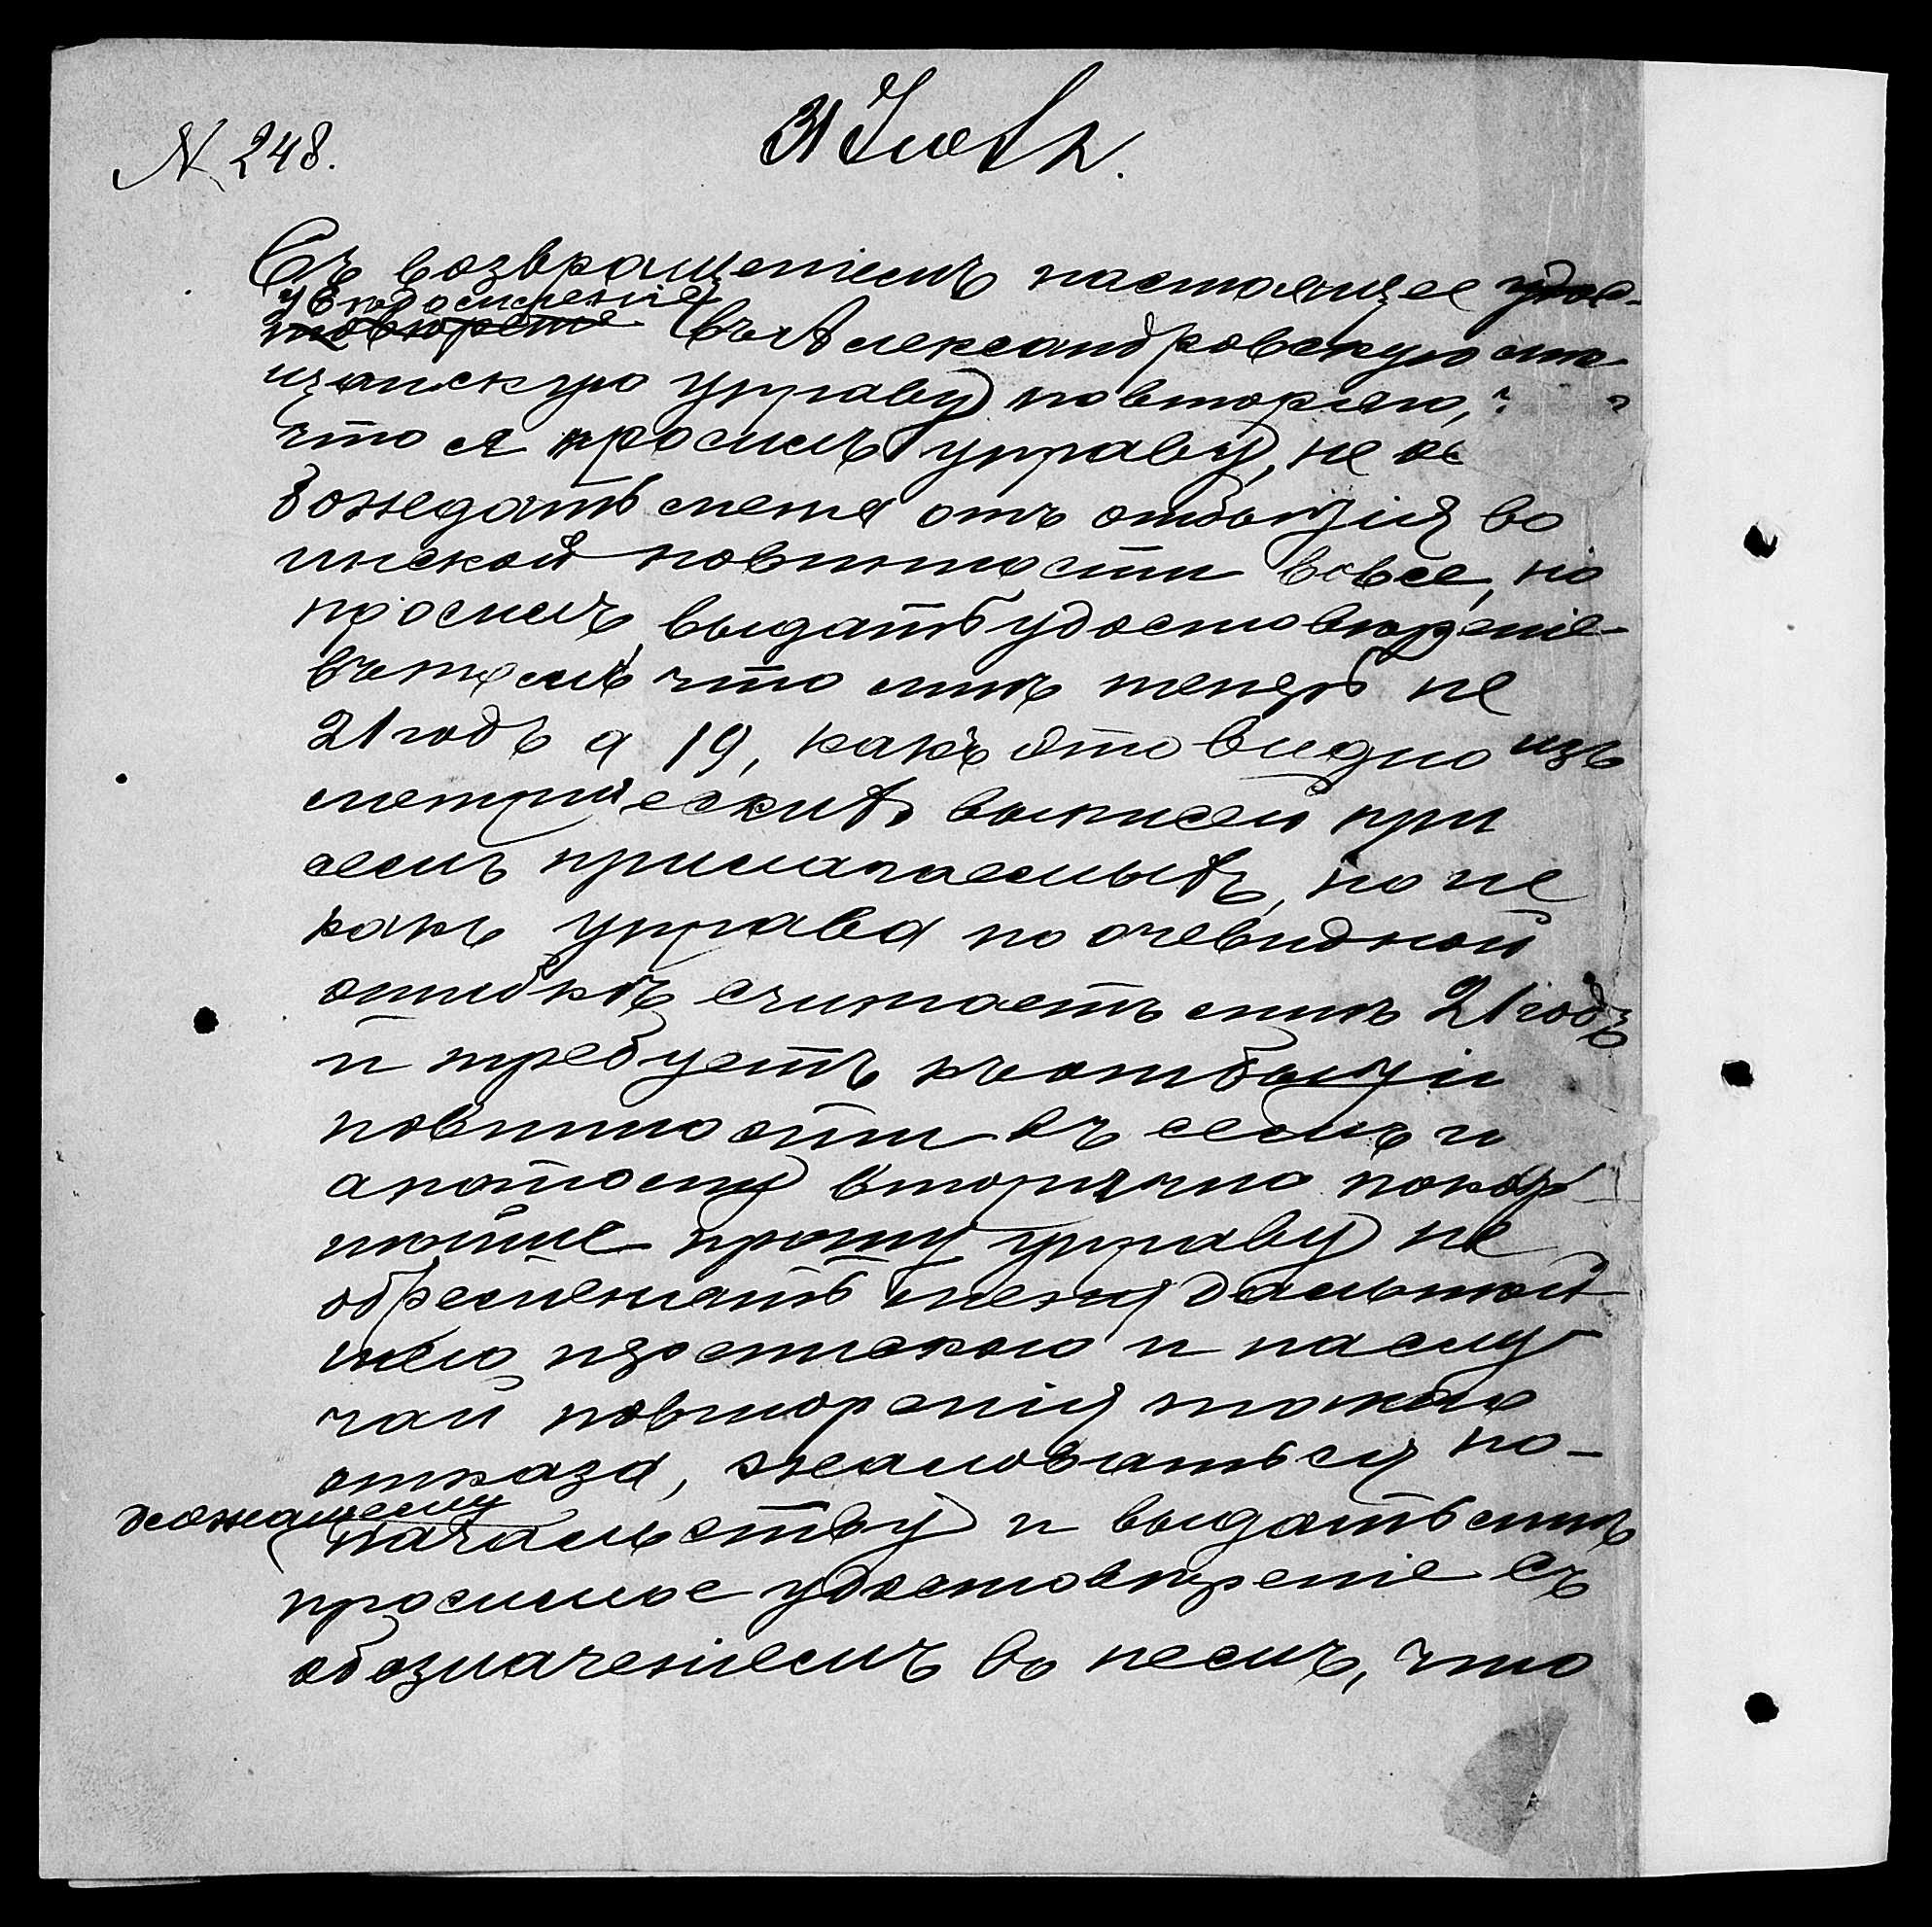 N 248.
31 Июля.
Съ возвращеніемъ настоящее удос-
увѣдомленіе
товѣреніе въ Александровскую мѣ-
щанскую управу повторяю,
что я просилъ управу, не ос
вобождать меня отъ отбытія во
инской повинности вовсе, но
просилъ выдать удостовѣреніе
въ томъ что мнѣ теперь не
21 годъ а 19, какъ это видно изъ
метрическихъ выписей при
семъ прилагаемыхъ, но не
какъ управа по очевидной
ошибкѣ считаетъ мнѣ 21 годъ
и требуетъ къ отбытіи
повинности въ семъ г
а потому вторично покор
нѣйше прошу управу не
обременять меня дальнѣй
шею перепискою и на слу
чай повторенія такого
отказа, жаловаться по-
лежащему
начальству и выдать мнѣ
просимое удостовѣреніе съ
обозначеніемъ въ немъ, что